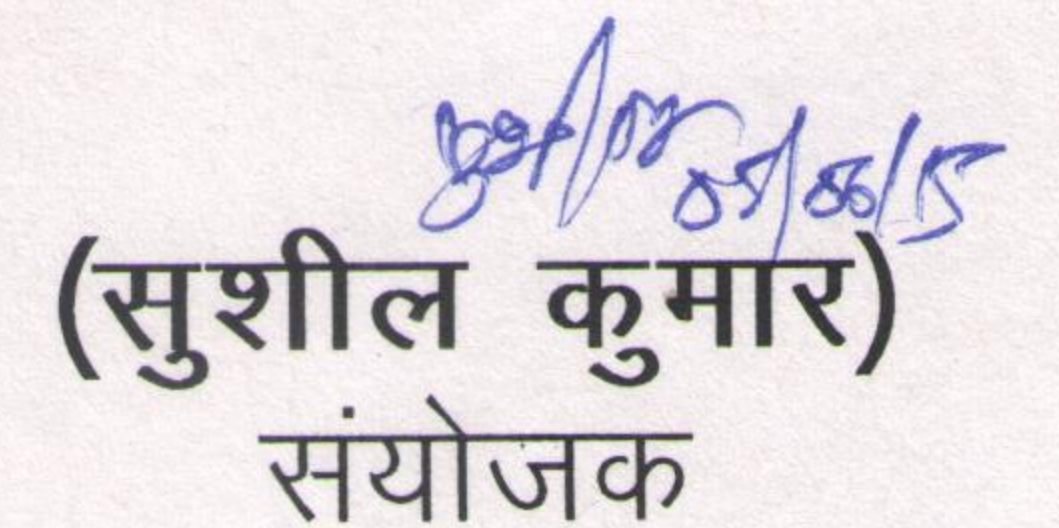 05/06/15
(सुशील कुमार)
संयोजक